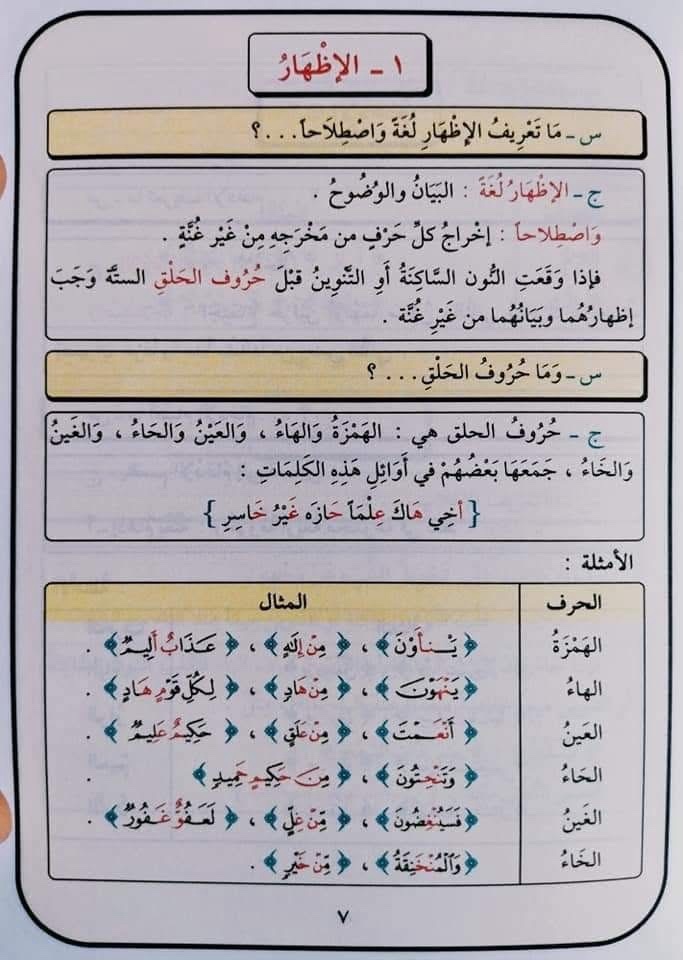 ١ - الإظْهَارُ
س - مَا تَعْرِيفُ الإظْهَارِ لُغَةً وَاصْطِلَاحاً...؟
ج - الإظْهَارُ لُغَةً : البَيَانُ والوُضُوحُ .
وَاصْطِلاحاً : إخْرَاجُ كلِّ حَرْفٍ من مَخْرَجِهِ مِنْ غَيْرِ غُنَّةٍ .
فإذا وَقَعَتِ النُّون السَّاكِنَةُ أَوِ التَّنْوِينُ قبْلَ حُرُوف الحَلْقِ الستَّة وَجَبَ
إظهارُهُما وبيَانُهُما من غَيْرِ غُنَّة .
س - وَمَا حُرُوفُ الحَلْقِ... ؟
ج - حُرُوفُ الحلق هي : الهَمْزَةُ وَالهَاءُ ، وَالعَيْنُ وَالحَاءُ ، وَالغَينُ
وَالخَاءُ ، جَمَعَهَا بَعْضُهُمْ في أوَائِلِ هَذِهِ الكَلِمَاتِ :
{ أخِي هَاكَ عِلْماً حَازَه غَيْرُ خَاسِرِ }
الأمثلة :
الحرف المثال
الهَمْزَةُ ﴿ يَنْأَوْنَ ﴾ ، ﴿ مِنْ إِلَهٍ ﴾ ، ﴿ عَذَابٌ أَلِيمٌ ﴾ .
الهاءُ ﴿ يَنْهَوْنَ ﴾ ، ﴿ مِنْ هَادٍ ﴾ ، ﴿ لِكُلِّ قَوْمٍ هَادٍ ﴾ .
العَينُ ﴿ أَنْعَمْتَ ﴾ ، ﴿ مِنْ عَلَقٍ ﴾ ، ﴿ حَكِيمٌ عَلِيمٌ ﴾ .
الحَاءُ ﴿ وَتَنْحِتُونَ ﴾ ، ﴿ مِنْ حَكِيمٍ حَمِيدٍ ﴾ .
الغَينُ ﴿ فَسَيُنْغِضُونَ ﴾ ، ﴿ مِنْ غِلٍّ ﴾ ، ﴿ لَعَفُوٌّ غَفُورٌ ﴾ .
الخَاءُ ﴿ وَالْمُنْخَنِقَةُ ﴾ ، ﴿ مِنْ خَيْرٍ ﴾ .
٧